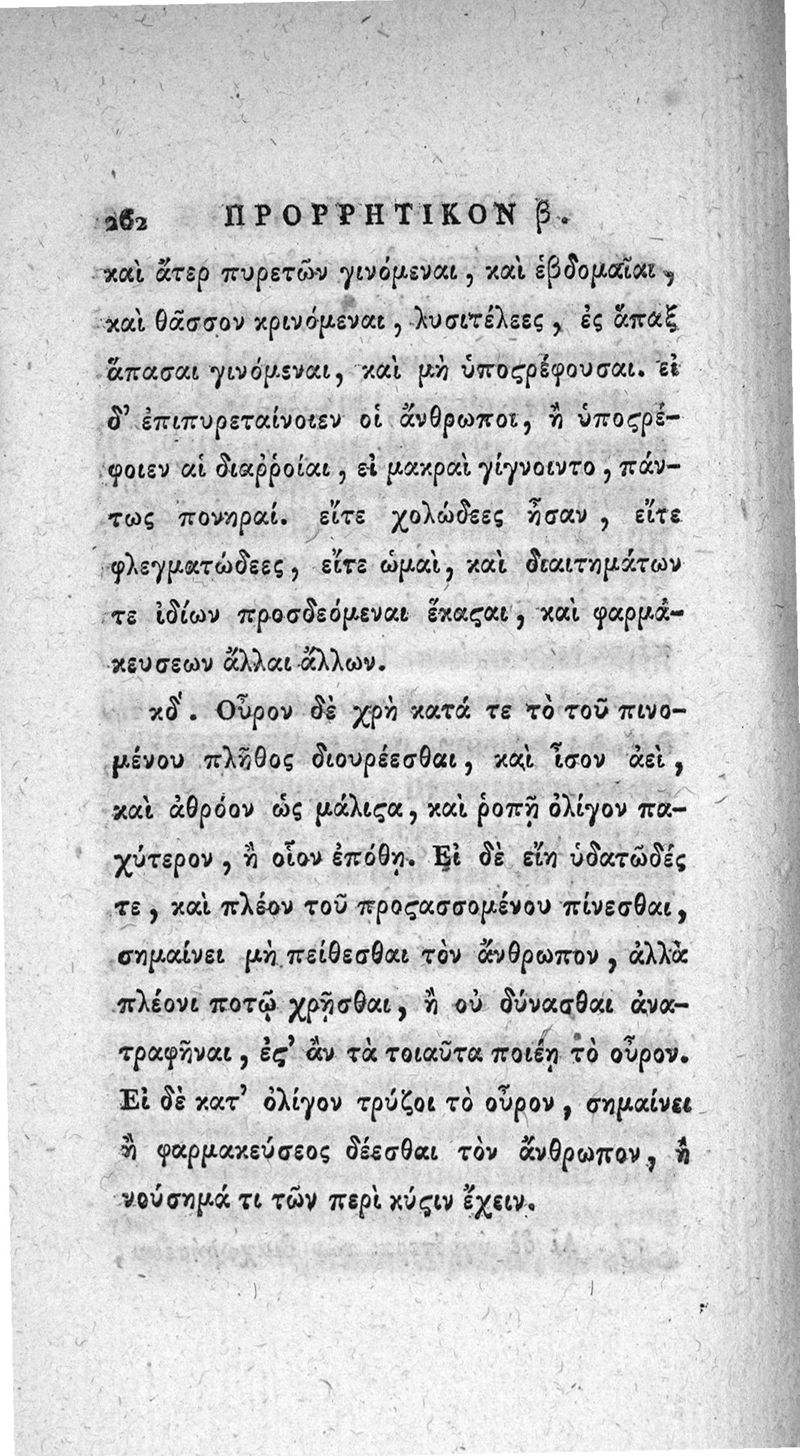 262 ΠΡΟΡΡΗΤΙΚΟΝ β.
καὶ ἄτερ πυρετῶν γινόμεναι, καὶ ἑβδομαῖαι,
καὶ θᾶσσον κρινόμεναι, λυσιτέλεες, ἐς ἅπαξ
ἅπασαι γινόμεναι, καὶ μὴ ὑποϛρέφουσαι. εἰ
δ’ ἐπιπυρεταίνοιεν οἱ ἄνθρωποι, ἢ ὑποϛρέ-
φοιεν αἱ διαῤῥοίαι, εἰ μακραὶ γίγνοιντο, πάν-
τως πονηραί. εἴτε χολώδεες ἦσαν, εἴτε
φλεγματώδεες, εἴτε ὠμαὶ, καὶ διαιτημάτων
τε ἰδίων προσδεόμεναι ἕκαϛαι, καὶ φαρμά-
κευσεων ἄλλαι ἄλλων.
κδ΄. Οὖρον δὲ χρὴ κατά τε τὸ τοῦ πινο-
μένου πλῆθος διουρέεσθαι, καὶ ἶσον ἀεὶ,
καὶ ἀθρόον ὡς μάλιϛα, καὶ ῥοπῇ ὀλίγον πα-
χύτερον, ἢ οἷον ἐπόθη. Εἰ δὲ εἴη ὑδατῶδές
τε, καὶ πλέον τοῦ προϛασσομένου πίνεσθαι,
σημαίνει μὴ πείθεσθαι τὸν ἄνθρωπον, ἀλλὰ
πλέονι ποτῷ χρῆσθαι, ἢ οὐ δύνασθαι ἀνα-
τραφῆναι, ἐϛ’ ἂν τὰ τοιαῦτα ποιέῃ τὸ οὖρον.
Εἰ δὲ κατ’ ὀλίγον τρύζοι τὸ οὖρον, σημαίνει
ἢ φαρμακεύσεος δέεσθαι τὸν ἄνθρωπον, ἢ
νούσημά τι τῶν περὶ κύϛιν ἔχειν.